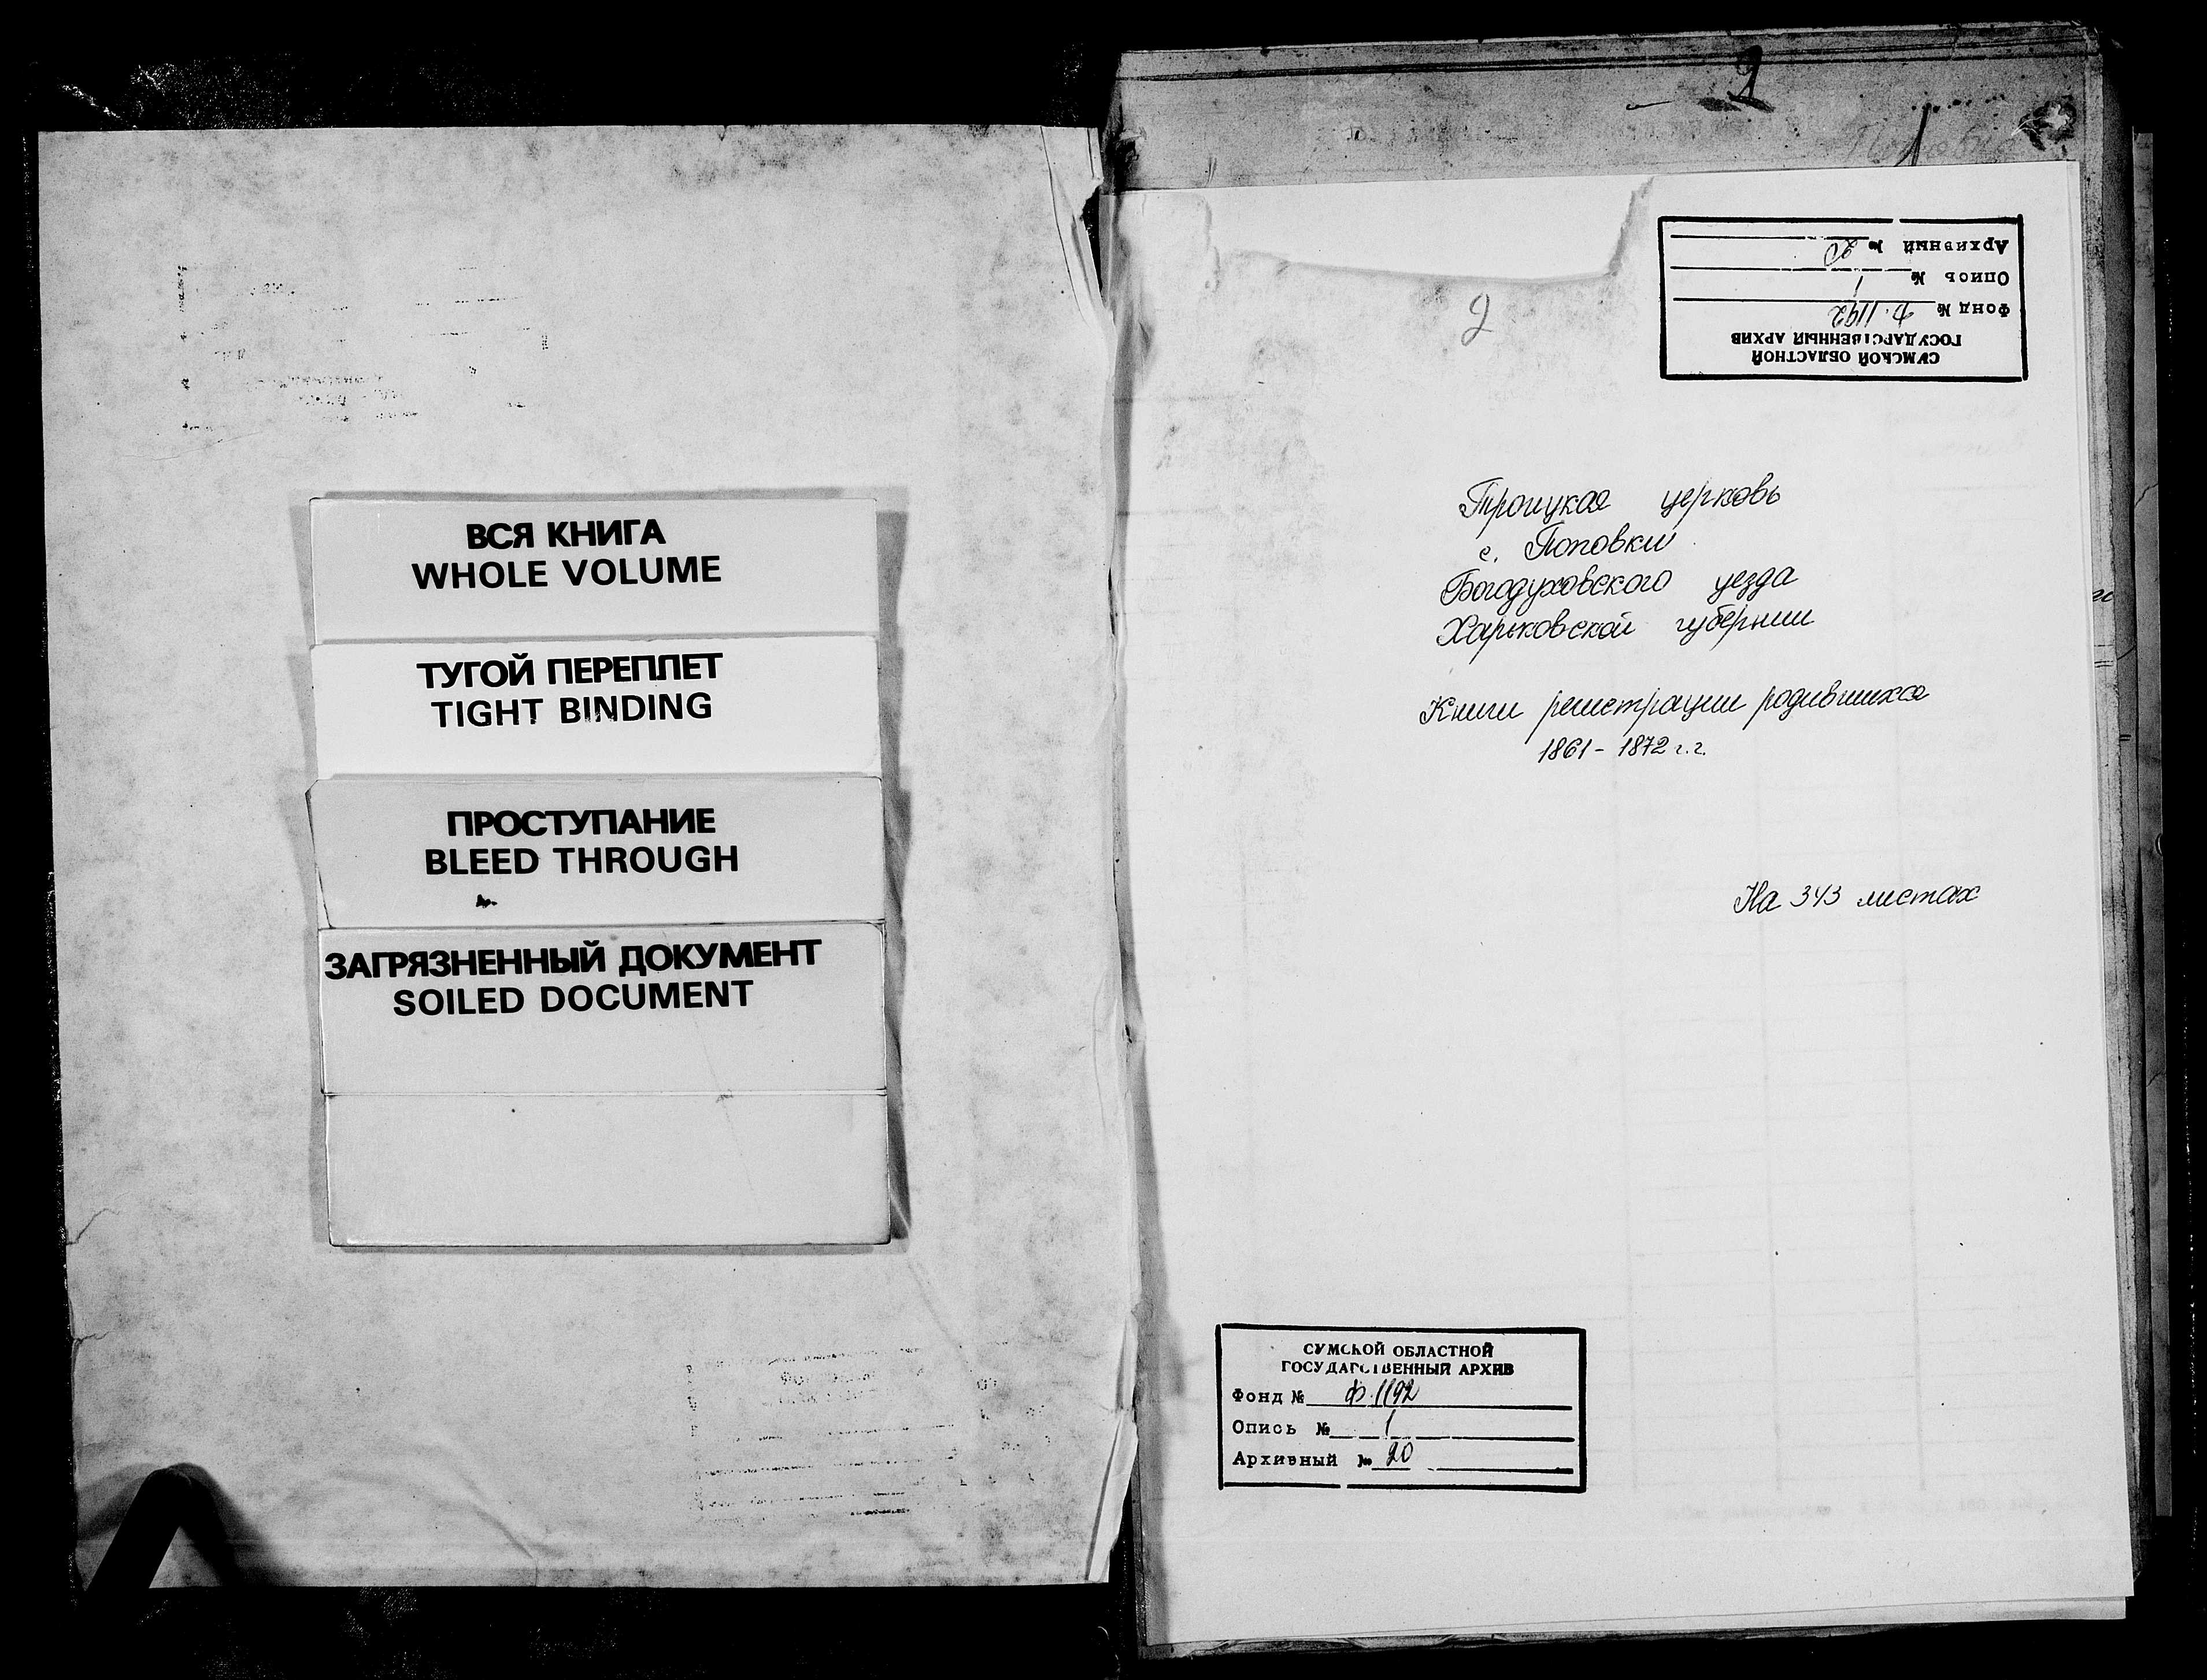 ВСЯ КНИГА
WHOLE VOLUME
ТУГОЙ ПЕРЕПЛЕТ
TIGHT BINDING
ПРОСТУПАНИЕ
BLEED THROUGH
ЗАГРЯЗНЕННЫЙ ДОКУМЕНТ
SOILED DOCUMENT
2
СУМСКОЙ ОБЛАСТНОЙ
ГОСУДАРСТВЕННЫЙ АРХИВ
Фонд № Ф. 1192
Опись № 1
Архивный № 20
2
Троицкая церковь
с. Поповки
Богодуховского уезда
Харьковской губернии
Книги регистрации родившихся
1861 - 1872 г.г.
На 343 листах
СУМСКОЙ ОБЛАСТНОЙ
ГОСУДАРСТВЕННЫЙ АРХИВ
Фонд № Ф. 1192
Опись № 1
Архивный № 20